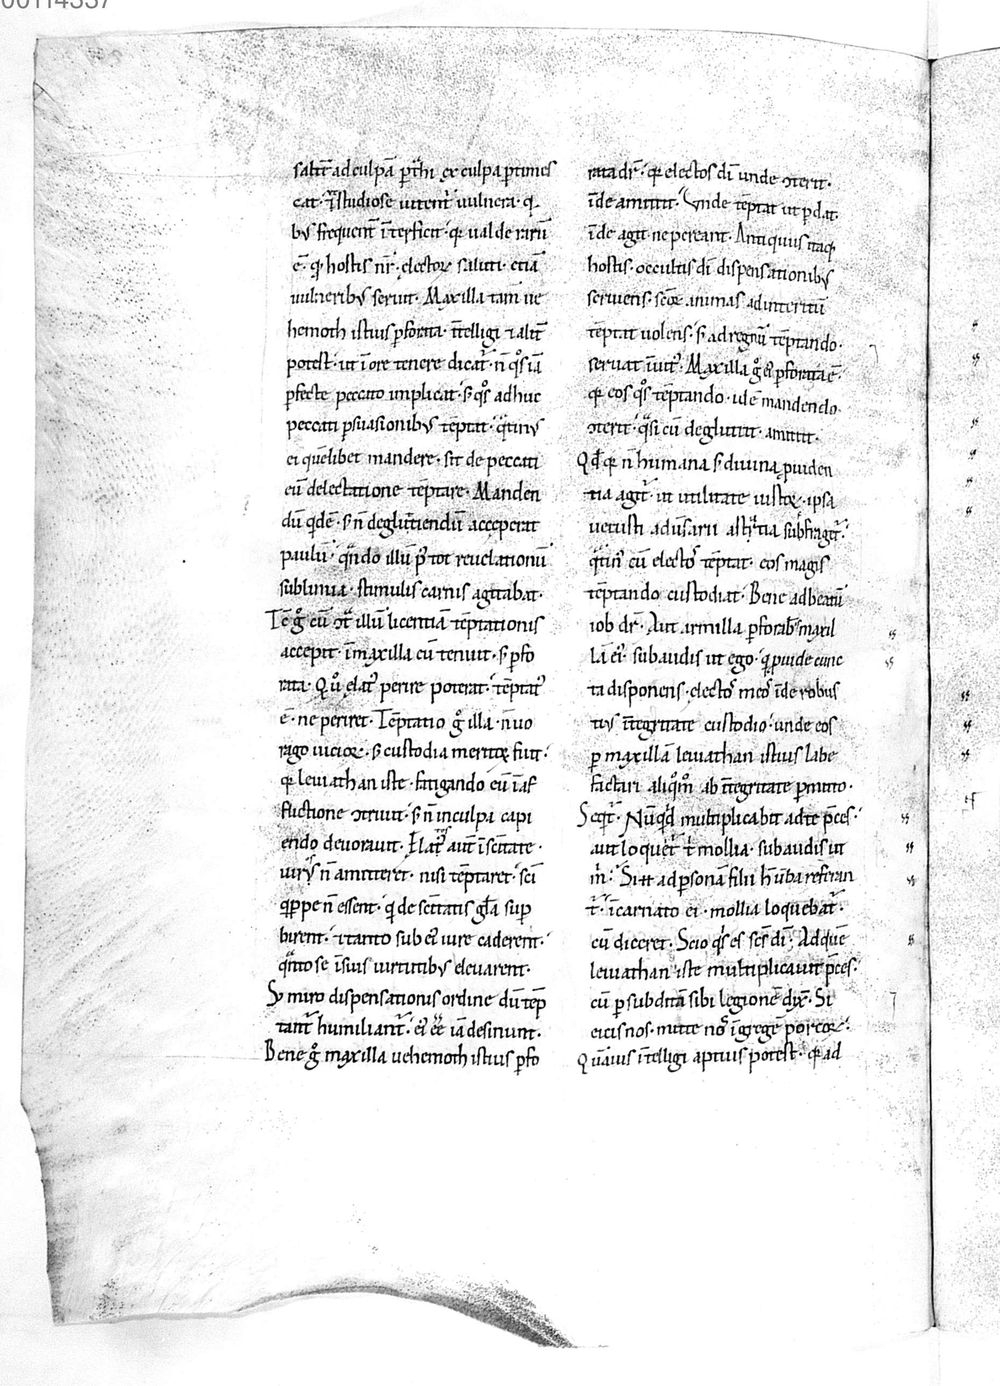 00114337
saltī ad culpā p̄ thi ex culpa ptimes
cat· Tā studiose uitent̄ uulnera· q̄
bꝰ frequent̄ īterficit· q̄ ualde rarū
ē· q̄ hostis nr̄· electoꝝ saluti· etiā
uulneribꝰ seruit· Maxilla tam̄ ue
hemoth istius pforata· ītelligi ⁊ alit̄
potest· ut ī ore tenere dicat̄· n̄ q̊s iā
pfecte peccato implicat· s̄ q̊s adhuc
peccati psuasionibꝰ tēptat· q̄tinꝰ
ei quēlibet mandere· sit de peccati
eū delectatione tēptare· Manden
dū q̄dē· s̄ n̄ deglutiendū acceperat
paulū· q̄ndo illū p̄ tot reuelationū
sublimia· stimulis carnis agitabat·
Tc̄ ḡ cū ↄt̄ illū licentiā tēptationis
accepit· ī maxilla eū tenuit· s̄ pfo
rata· Qui elat̄ perire poterat· tēptat̄
ē· ne periret· Tēptatio ḡ illa· n̄ uo
rago uicioꝝ· s̄ custodia meritoꝝ fuit·
q̄ leuiathan iste· fatigando eū ī af
flictione ↄtriuit· s̄ n̄ in culpa capi
endo deuorauit· Elat̄s aut̄ ī sc̄itate·
uiros n̄ amitteret· nisi tēptaret· sc̄i
q̄ppe n̄ essent· q̄ de sc̄itatis gl̄a sup
birent· ⁊ tanto sub ei iure caderent·
q̄nto se ī suis uirtutibꝰ eleuarent·
Sꝫ miro dispensationis ordine dū tēp
tant̄ humiliant̄· ei ēē iā desinunt·
Bene ḡ maxilla uehemoth istius pfo
rata dr̄· q̄ electos dī unde ↄterit·
īde amittit· Unde tēptat ut pdat·
īde agit ne pereant· Antiquus itaq̄
hostis· occultis dī dispensationibꝰ
seruiens· seq̄ animas ad interitū
tēptat uolens· s̄ ad regnū tēptando·
seruat īuit̄· Maxilla ḡ ei pforata ē·
q̄ eos q̊s tēptando· idē mandendo
ↄterit· q̄si cū deglutit· amittit·
Qd̄ q̄ n̄ humana s̄ diuina puiden
tia agit̄· ut utilitate iustoꝝ· ipsa
uetusti aduersarii astutia subfragit̄·
q̄tin̄ cū electos tēptat· eos magis
tēptando custodiat· Bene ad beatū
iob dr̄· Aut armilla pforabis maxil
lā ei· subaudis ut ego· q̄ puide cunc
ta disponens· electos meos īde robus
tiꝰ ītegritate custodio· unde eos
p maxillā leuiathan istius labe
factari aliq̄m̄ ab ītegritate pmitto·
Seq̄t̄· Nūq̄d multiplicabit ad te p̄ces·
aut loquet̄ t̄ mollia· subaudis ut
m̄· Si ⁊ ad psonā filii h̄ uba referan
t̄· īcarnato ei· mollia loquebat̄·
cū diceret· Scio q̄s es sc̄s dī· Ad quē
leuiathan iste multiplicauit p̄ces·
cū p subditā sibi legionē dix̄· Si
eicis nos· mitte nos ī gregē porcoꝝ·
Quāuis ītelligi aptius potest· q̄ ad